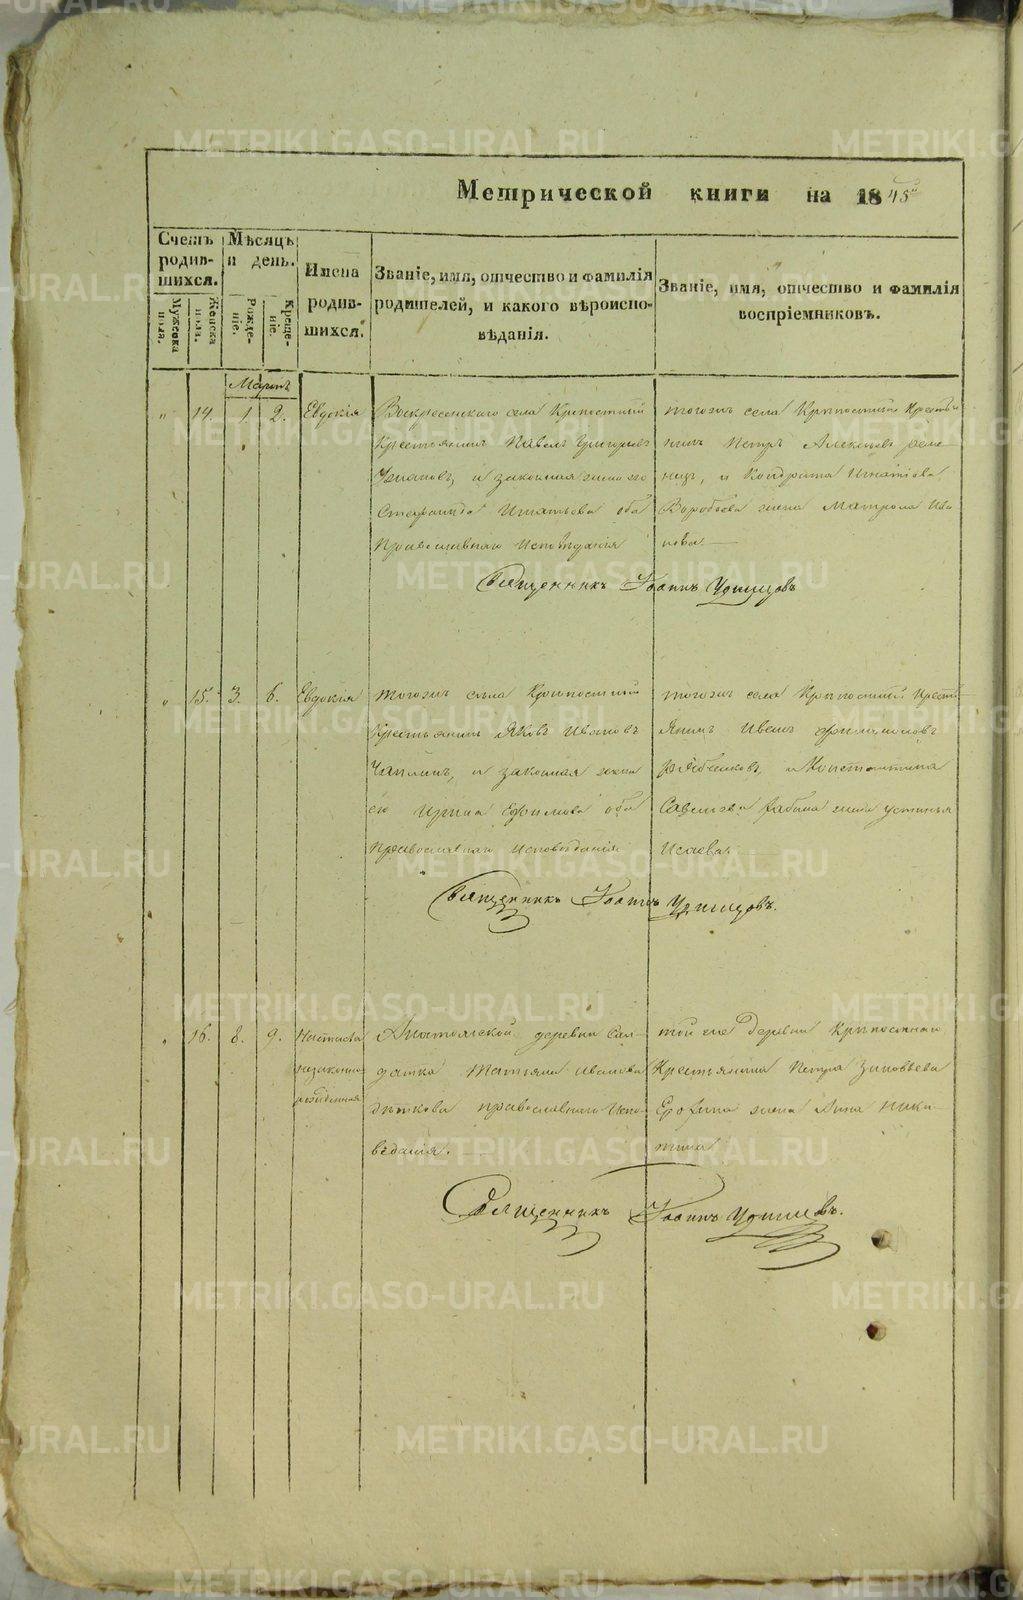 Метрической книги на 1845
Счетъ родив- шихся.
Мѣсяцъ и день.
Имена родив- шихся.
Званіе, имя, отчество и фамилія
родителей, и какого вѣроиспо-
вѣданія.
Званіе, имя, отчество и фамилія
воспріемниковъ.
Мужеска пола.
Женска пола.
Рожде- ніе.
Креще- ніе.
Мартъ
" 14. 1. 2. Евдокія
Воскресенскаго села Крепостный
Крестьянинъ Павелъ Григорьевъ
и законная жена его
Игнатьева оба
Православнаго Исповѣданія
тогожъ села Крѣпостный Крестья
нинъ Петръ Алексѣевъ
и Кондрата Игнатіева
Воробьева жена Матрона Ива
нова.
Священникъ Іоаннъ Удинцовъ
" 15. 3. 6. Евдокія
тогожъ села Крѣпостный
Крестьянинъ Яковъ Ивановъ
Чаплинъ, и законная жена
его Ирина Ефимова оба
Православнаго Исповѣданія
тогожъ села Крѣпостный Крестья
янинъ Иванъ Филимоновъ
Рябчиковъ, и Константина
Савельева Бабина жена Устинья
Исаева.
Священникъ Іоаннъ Удинцовъ.
" 16. 8. 9. Настасья
незаконно
рожденная
деревни Сол-
датка Татьяна Иванова
православнаго Испо-
вѣданія.
той же Деревни Крѣпостнаго
Крестьянина Петра Зиновьева
Ерофина жена Анна Ники-
тина
Священникъ Іоаннъ Удинцовъ.
METRIKI.GASO-URAL.RU